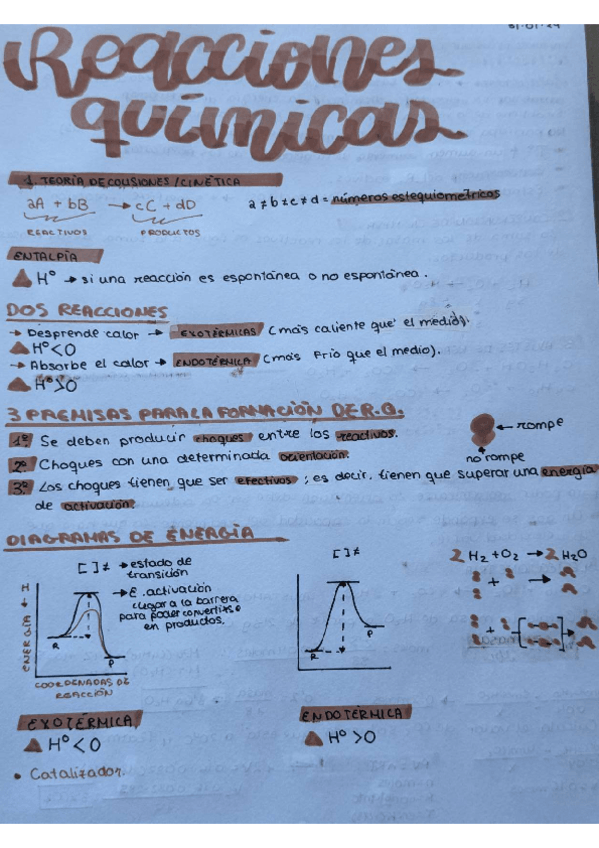 31-01-24
Reacciones
químicas
1. TEORÍA DE COLISIONES/CINÉTICA
aA + bB → cC + dD
a ≠ b ≠ c ≠ d = números estequiométricos
REACTIVOS PRODUCTOS
ENTALPÍA
▲ Hº → si una reacción es espontánea o no espontánea.
DOS REACCIONES
→ Desprende calor → EXOTÉRMICAS (más caliente que el medio).
▲ Hº < 0
→ Absorbe el calor → ENDOTÉRMICA (más frío que el medio).
▲ Hº > 0
3 PREMISAS PARA LA FORMACIÓN DE R.Q.
1º Se deben producir choques entre los reactivos.
2º Choques con una determinada orientación.
3º Los choques tienen que ser efectivos; es decir, tienen que superar una energía
de activación.
← rompe
no rompe
DIAGRAMAS DE ENERGÍA
[ ]≠ → estado de
transición
→ E. activación
llegar a la barrera
para poder convertirse
en productos.
ENERGÍA → H
R
P
COORDENADAS DE
REACCIÓN
[ ]≠
R
P
2 H2 + O2 → 2 H2O
+ →
+ [ ] →
EXOTÉRMICA
▲ Hº < 0
ENDOTÉRMICA
▲ Hº > 0
• Catalizador.